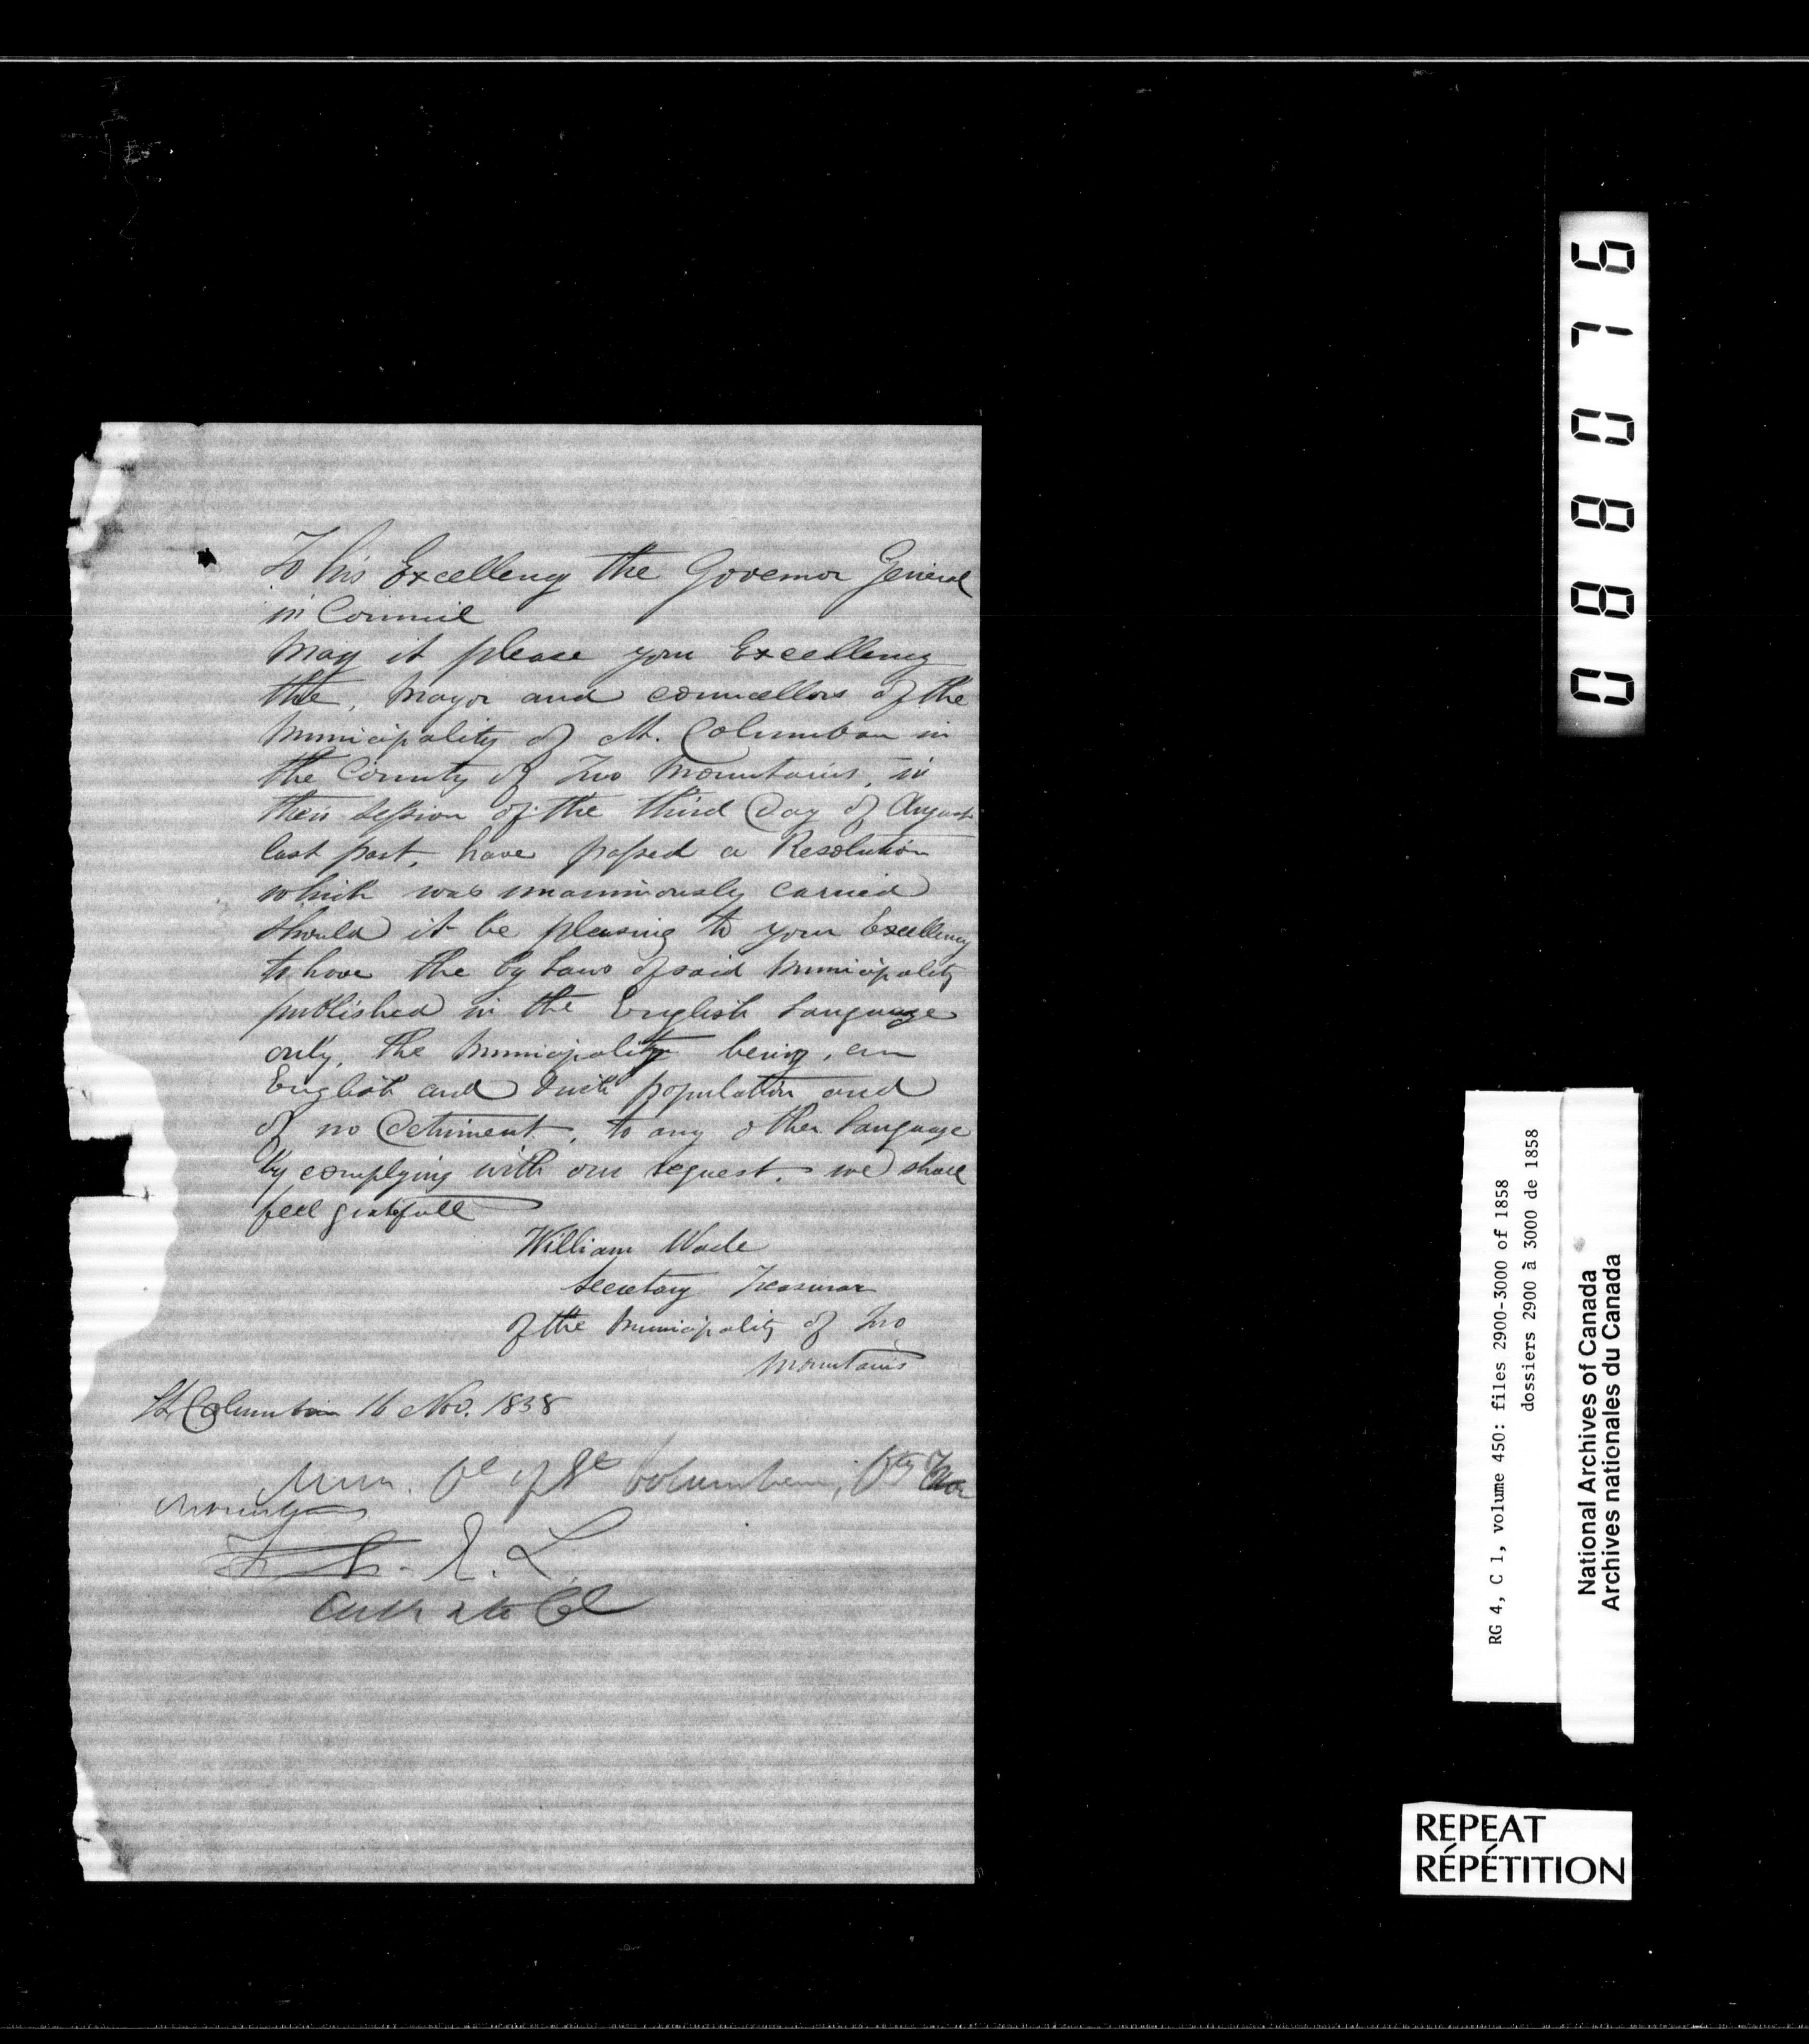 To his Excellency the Governor General
in Council
May it please your Excellency
the, Mayor and councellors of the
Municipality of St. Columban in
the County of Two Mountains, in
their session of the third Day of August
last past, have passed a Resolution
which was unanimously carried
should it be pleasing to your Excellency
to have the by Laws of said Municipality
published in the English Language
only, the Municipality being, an
English and Irish population and
of no Detriment, to any other Language
by complying with our request. we shall
feel gratefull
William Wade
Secretary Treasurar
of the Municipality of Two
Mountains
St Columban 16 Nov. 1858
Mun. Cl of St Columban, Cty Two
Mountains
E. L.
088076
RG 4, C 1, volume 450: files 2900-3000 of 1858
dossiers 2900 à 3000 de 1858
National Archives of Canada
Archives nationales du Canada
REPEAT
RÉPÉTITION